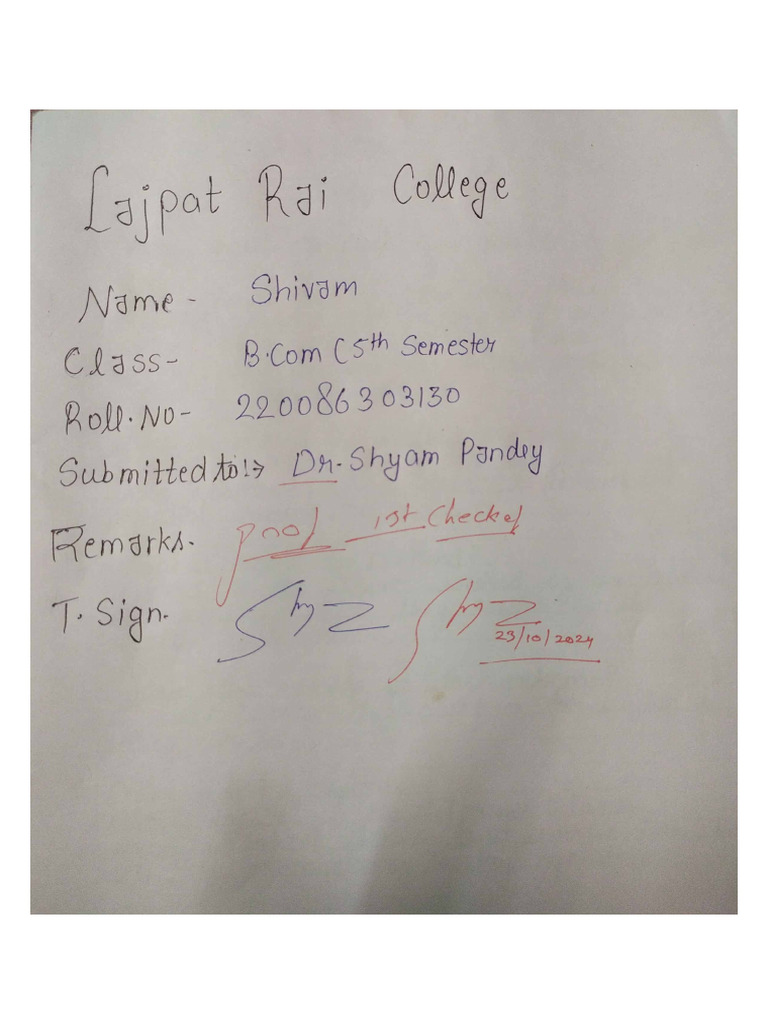 Lajpat Rai College
Name - Shivam
Class - B.Com (5th Semester
Roll.No - 220086303130
Submitted to :-> Dr. Shyam Pandey
Remarks. 1st Checked
T. Sign.
23/10/2024